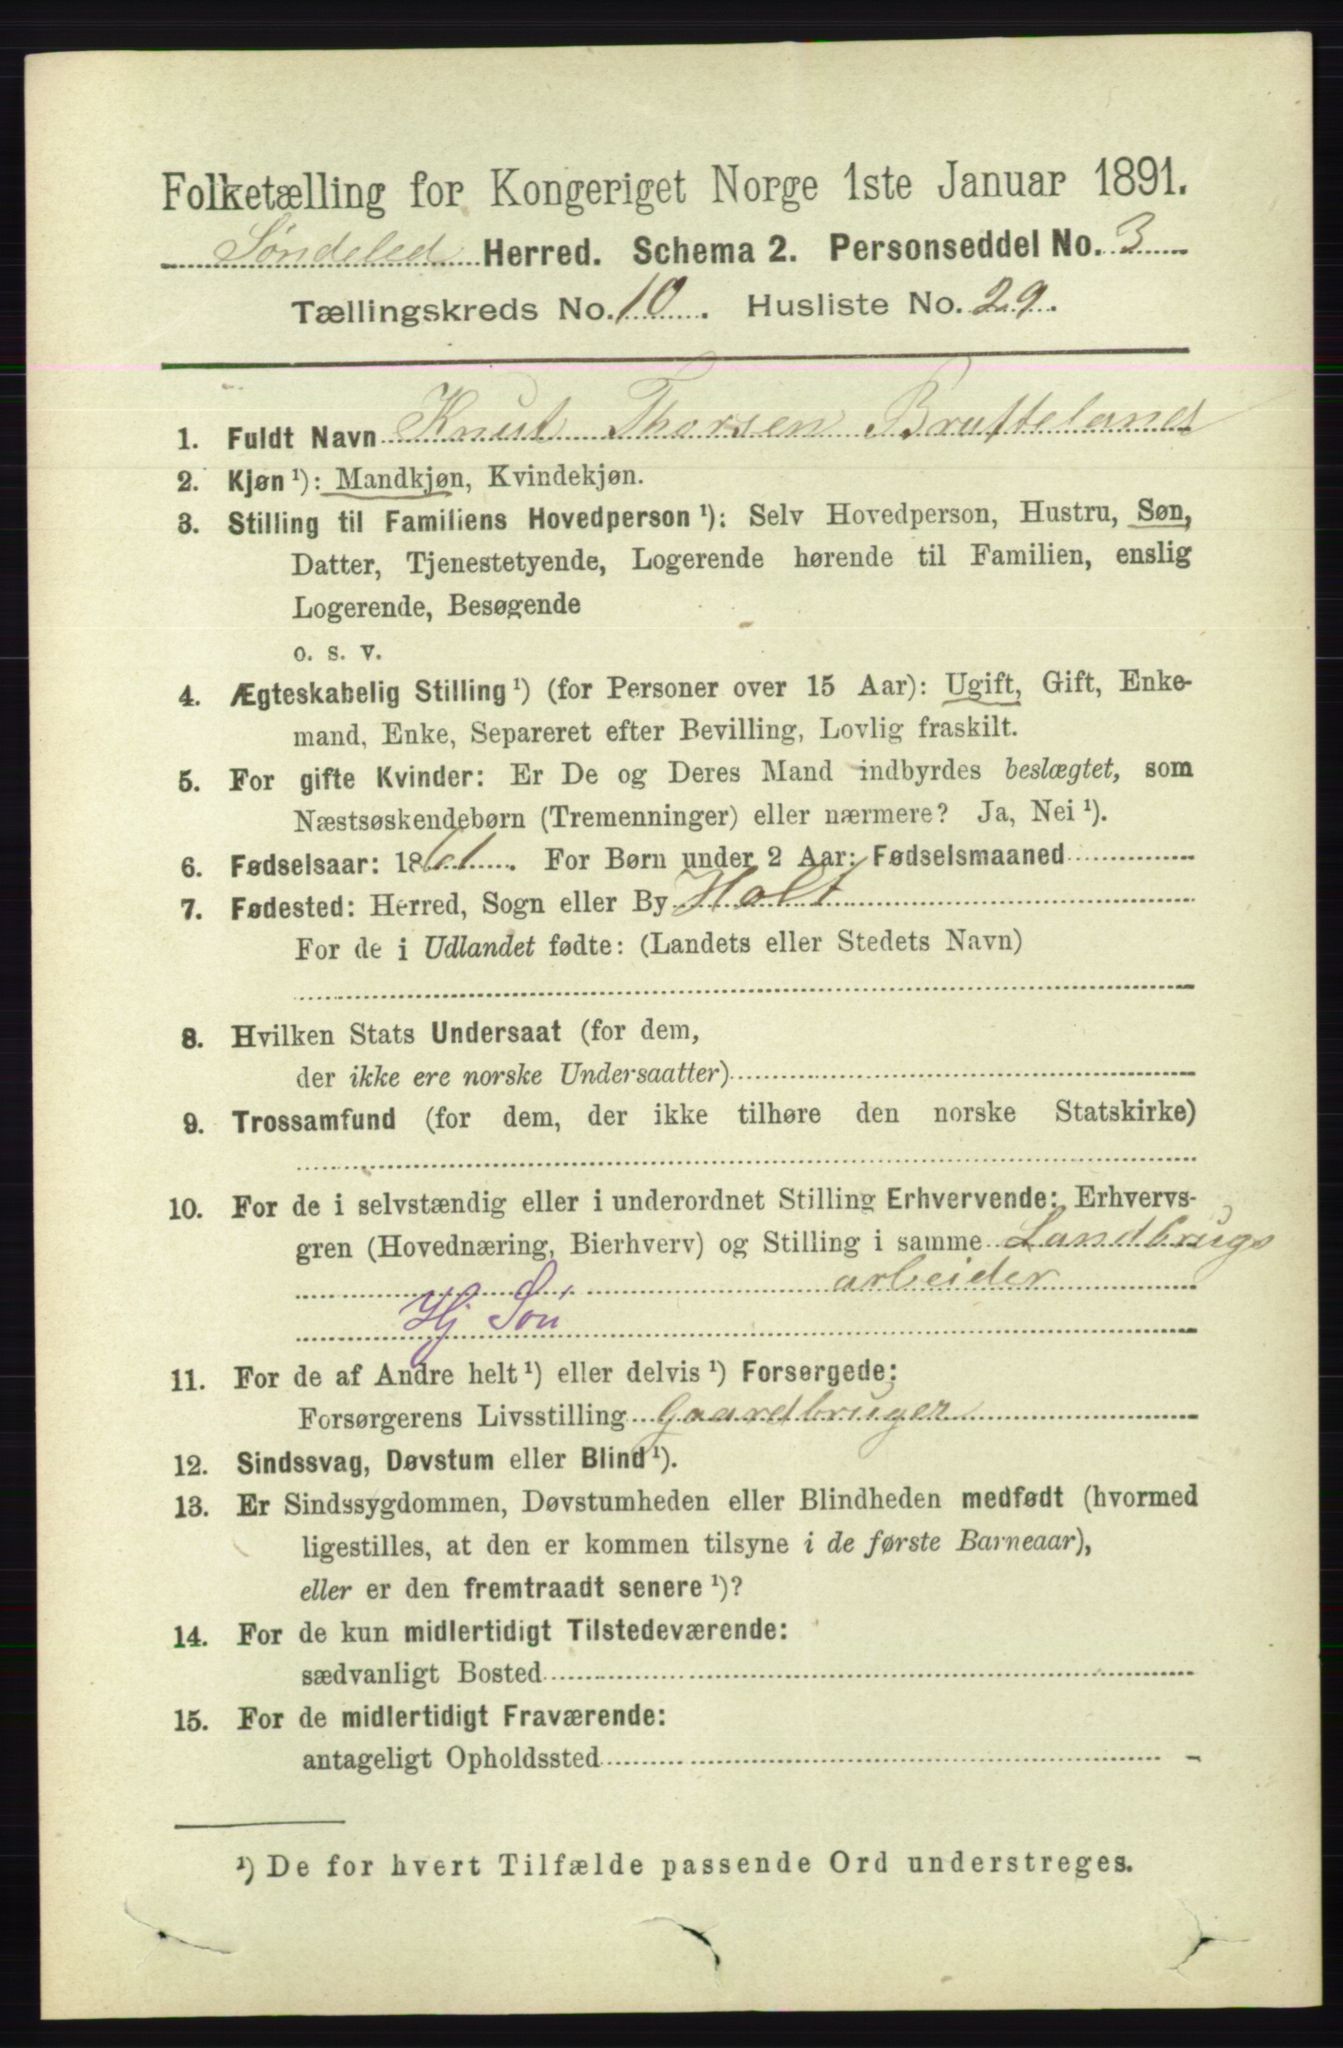 Folketælling for Kongeriget Norge 1ste Januar 1891.
Søndeled Herred. Schema 2. Personseddel No. 3
Tællingskreds No. 10. Husliste No. 29.
1. Fuldt Navn Knut Thorsen Brutteland
2. Kjøn ¹): Mandkjøn, Kvindekjøn.
3. Stilling til Familiens Hovedperson ¹): Selv Hovedperson, Hustru, Søn,
Datter, Tjenestetyende, Logerende hørende til Familien, enslig
Logerende, Besøgende
o. s. v.
4. Ægteskabelig Stilling ¹) (for Personer over 15 Aar): Ugift, Gift, Enke-
mand, Enke, Separeret efter Bevilling, Lovlig fraskilt.
5. For gifte Kvinder: Er De og Deres Mand indbyrdes beslægtet, som
Næstsøskendebørn (Tremenninger) eller nærmere? Ja, Nei ¹).
6. Fødselsaar: 1861. For Børn under 2 Aar: Fødselsmaaned
7. Fødested: Herred, Sogn eller By Holt
For de i Udlandet fødte: (Landets eller Stedets Navn)
8. Hvilken Stats Undersaat (for dem,
der ikke ere norske Undersaatter)
9. Trossamfund (for dem, der ikke tilhøre den norske Statskirke)
10. For de i selvstændig eller i underordnet Stilling Erhvervende: Erhvervs-
gren (Hovednæring, Bierhverv) og Stilling i samme Landbrugs
arbeider
Hj Søn
11. For de af Andre helt ¹) eller delvis ¹) Forsørgede:
Forsørgerens Livsstilling Gaardbruger
12. Sindssvag, Døvstum eller Blind ¹).
13. Er Sindssygdommen, Døvstumheden eller Blindheden medfødt (hvormed
ligestilles, at den er kommen tilsyne i de første Barneaar),
eller er den fremtraadt senere ¹)?
14. For de kun midlertidigt Tilstedeværende:
sædvanligt Bosted
15. For de midlertidigt Fraværende:
antageligt Opholdssted
¹) De for hvert Tilfælde passende Ord understreges.